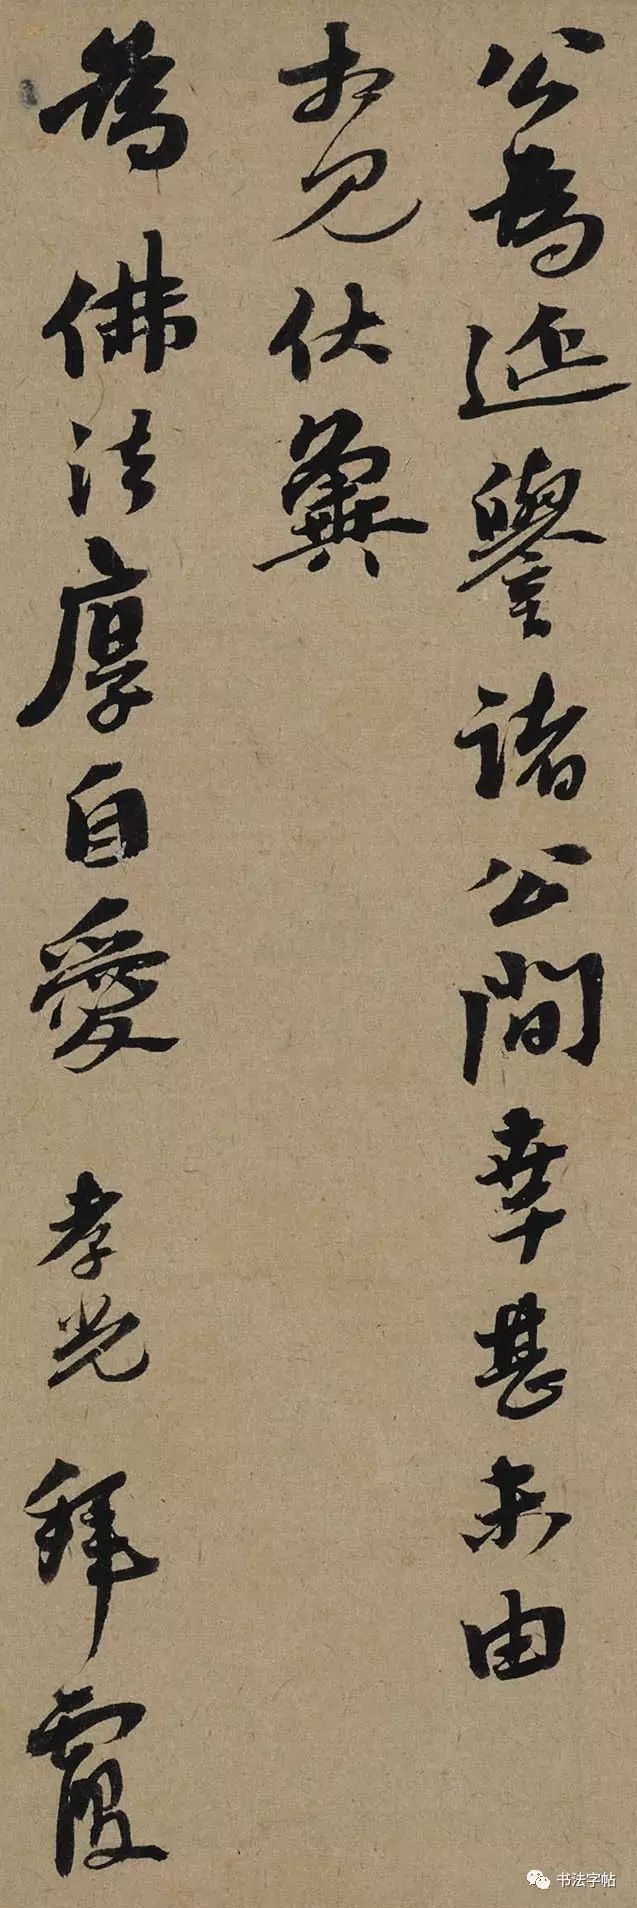 公為延譽諸公間幸甚未由
相見伏冀
為佛法厚自愛 孝光拜覆
书法字帖